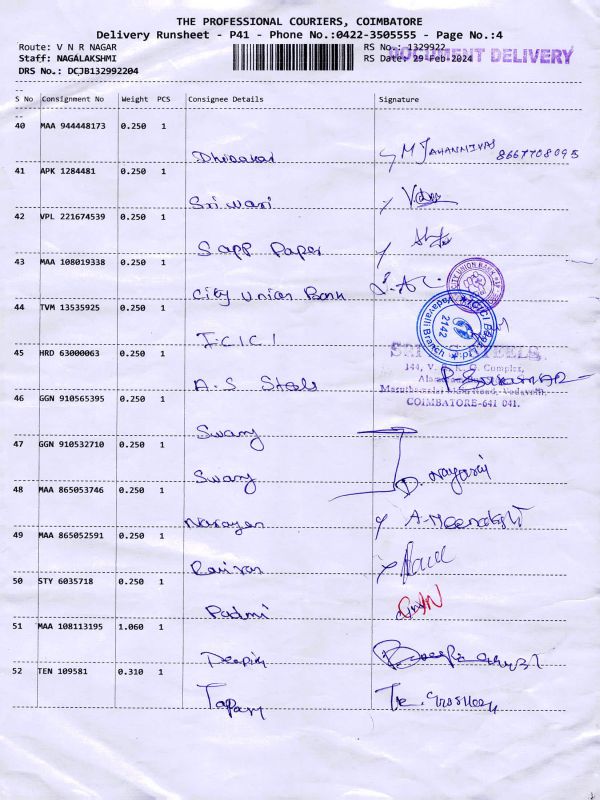 THE PROFESSIONAL COURIERS, COIMBATORE
Delivery Runsheet - P41 - Phone No.:0422-3505555 - Page No.:4
Route: V N R NAGAR RS No.: 1329922
DOCUMENT DELIVERY
Staff: NAGALAKSHMI RS Date: 29-Feb-2024
DRS No.: DCJB132992204
S No Consignment No Weight PCS Consignee Details Signature
40 MAA 944448173 0.250 1
Diwakar M 8667708095
41 APK 1284481 0.250 1
Sri vari
42 VPL 221674539 0.250 1
Sapp Paper
43 MAA 108019338 0.250 1
City Union Bank
CITY UNION BANK
44 TVM 13535925 0.250 1
I.C.I.C.I
ICICI Bank Ltd. Vadavalli Branch 2142
45 HRD 63000063 0.250 1
A.S Steels
SRI STEELS
144, V. Complex,
Vadavalli,
COIMBATORE-641 041.
46 GGN 910565395 0.250 1
Swamy
47 GGN 910532710 0.250 1
Swamy D. Nagaraj
48 MAA 865053746 0.250 1
Narayan A. Meenakshi
49 MAA 865052591 0.250 1
50 STY 6035718 0.250 1
Padmi
51 MAA 108113195 1.060 1
52 TEN 109581 0.310 1